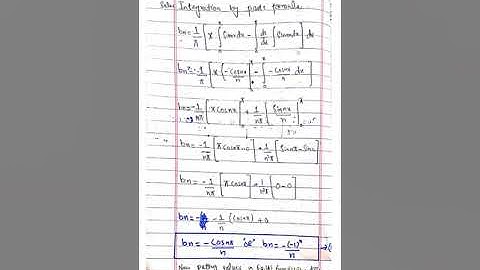 Integration by parts formula
bn = 1/π [ x ∫ sinnx dx - ∫ dx/dx ∫ sinnx dx ] dx
bn = 1/π [ x { -cosnx/n } - ∫ -cosnx/n dx ]
bn = -1/nπ [ x cosnx ] + 1/nπ [ sinnx/n ]
bn = -1/nπ [ π cosnπ - 0 ] + 1/n²π [ sinnπ - sin0 ]
bn = -1/nπ [ π cosnπ ] + 1/n²π [ 0 - 0 ]
bn = -1/n (cosnπ) + 0
bn = -cosnπ/n "or" bn = -(-1)ⁿ/n
Now putting values in